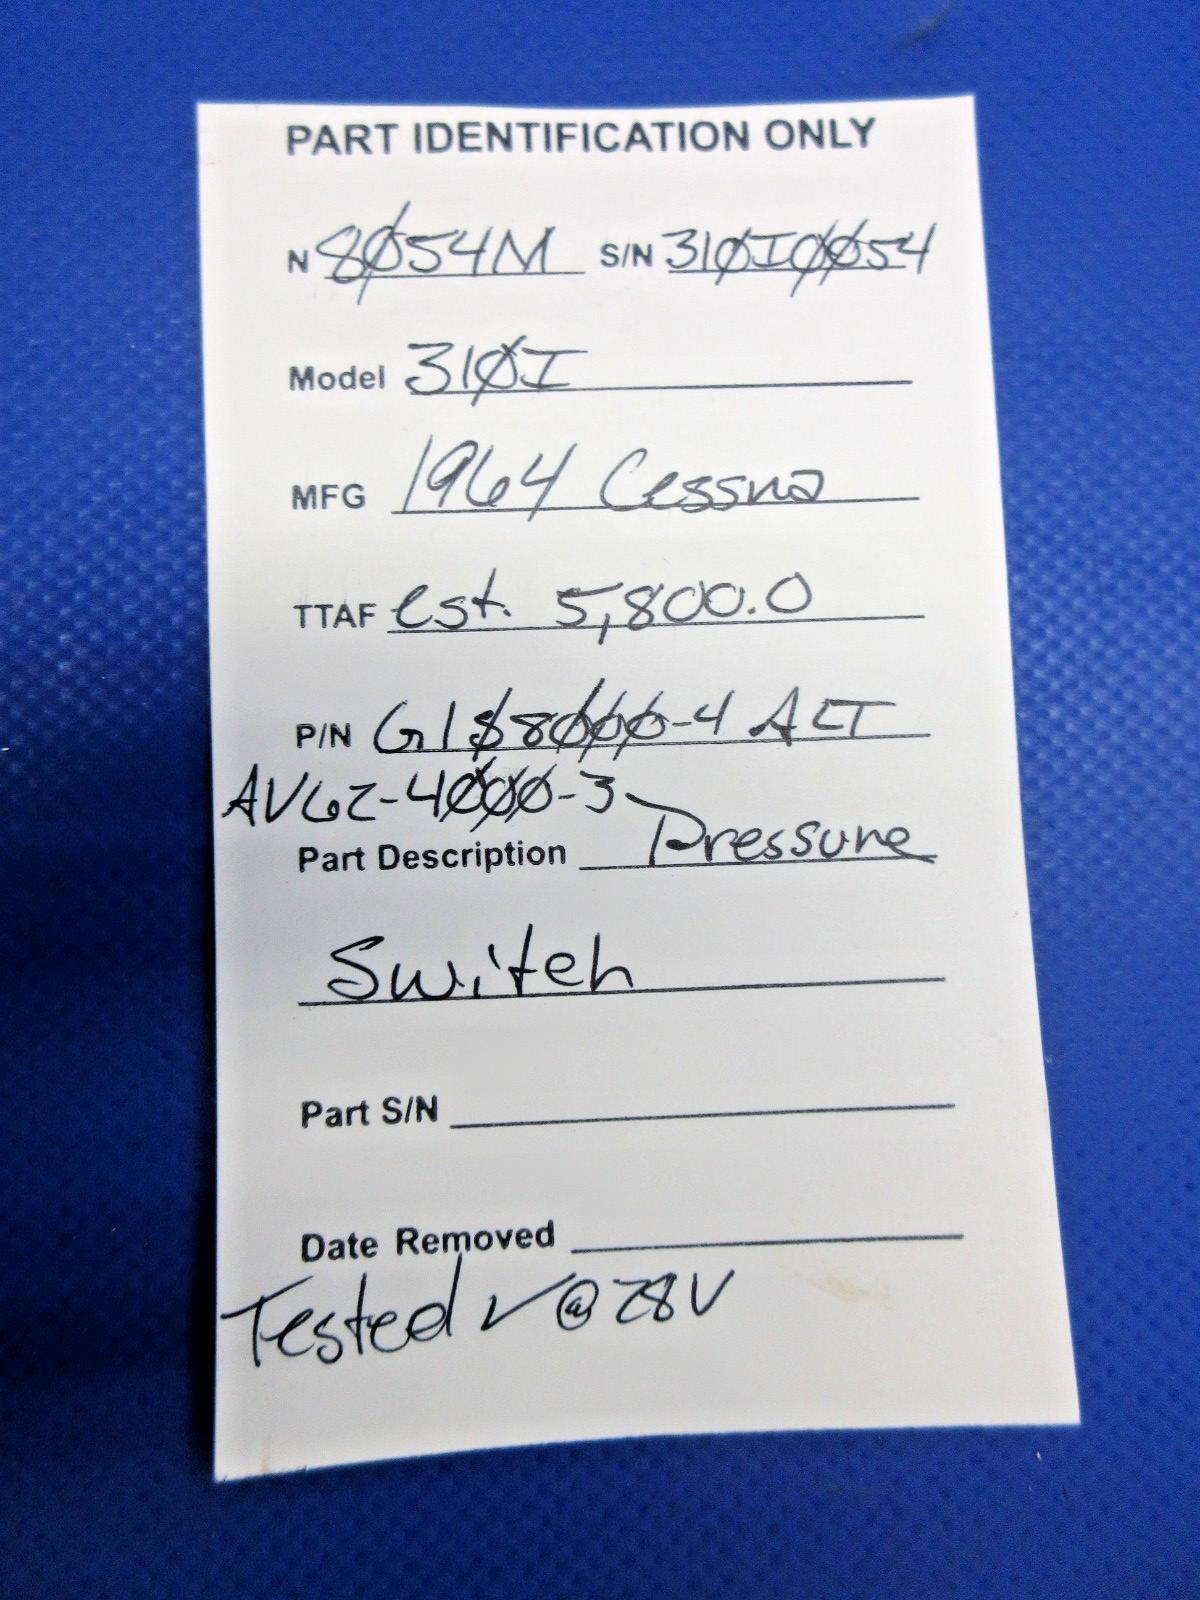 PART IDENTIFICATION ONLY
N 8054M S/N 310I0054
Model 310I
MFG 1964 Cessna
TTAF est. 5,800.0
P/N G1S8000-4 ALT
AVG2-4000-3
Part Description Pressure
Switch
Part S/N
Date Removed
Tested ✓ @ 28V